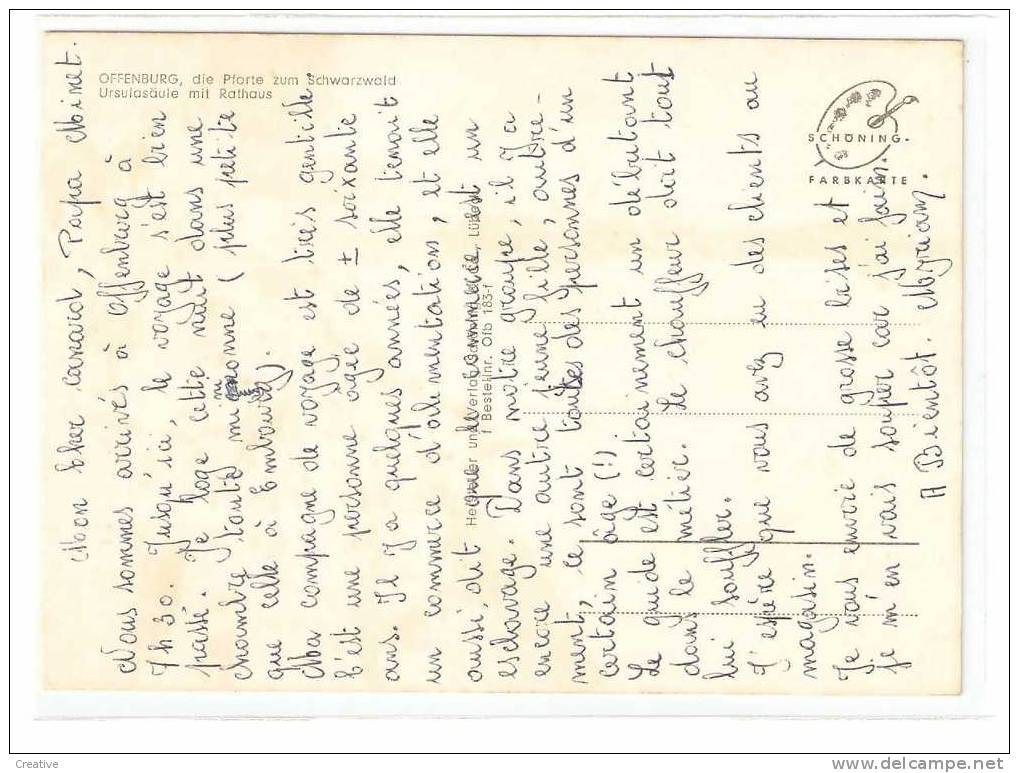 OFFENBURG, die Pforte zum Schwarzwald
Ursulasäule mit Rathaus
SCHÖNING-
FARBKARTE
Bestellnr. Ofb 183-f
Mon cher canard, Papa Minet.
Nous sommes arrivés à Offenburg à
7 h 30. Jusqu'ici, le voyage s'est bien
passé. Je loge cette nuit dans une
chambre toute mignonne (plus petite
que celle à Embourg).
Ma compagne de voyage est très gentille.
C'est une personne âgée de ± soixante
ans. Il y a quelques années, elle tenait
un commerce d'alimentation, et elle
aussi, dit que le commerce est un
esclavage. Dans notre groupe, il y a
encore une autre jeune fille, autre-
ment, ce sont toutes des personnes d'un
certain âge (!)
Le guide est certainement un débutant
dans le métier. Le chauffeur doit tout
lui souffler.
J'espère que vous avez eu des clients au
magasin.
Je vous envoie de grosse bises et
je m'en vais souper car j'ai faim.
A Bientôt. Myriam.
Creative